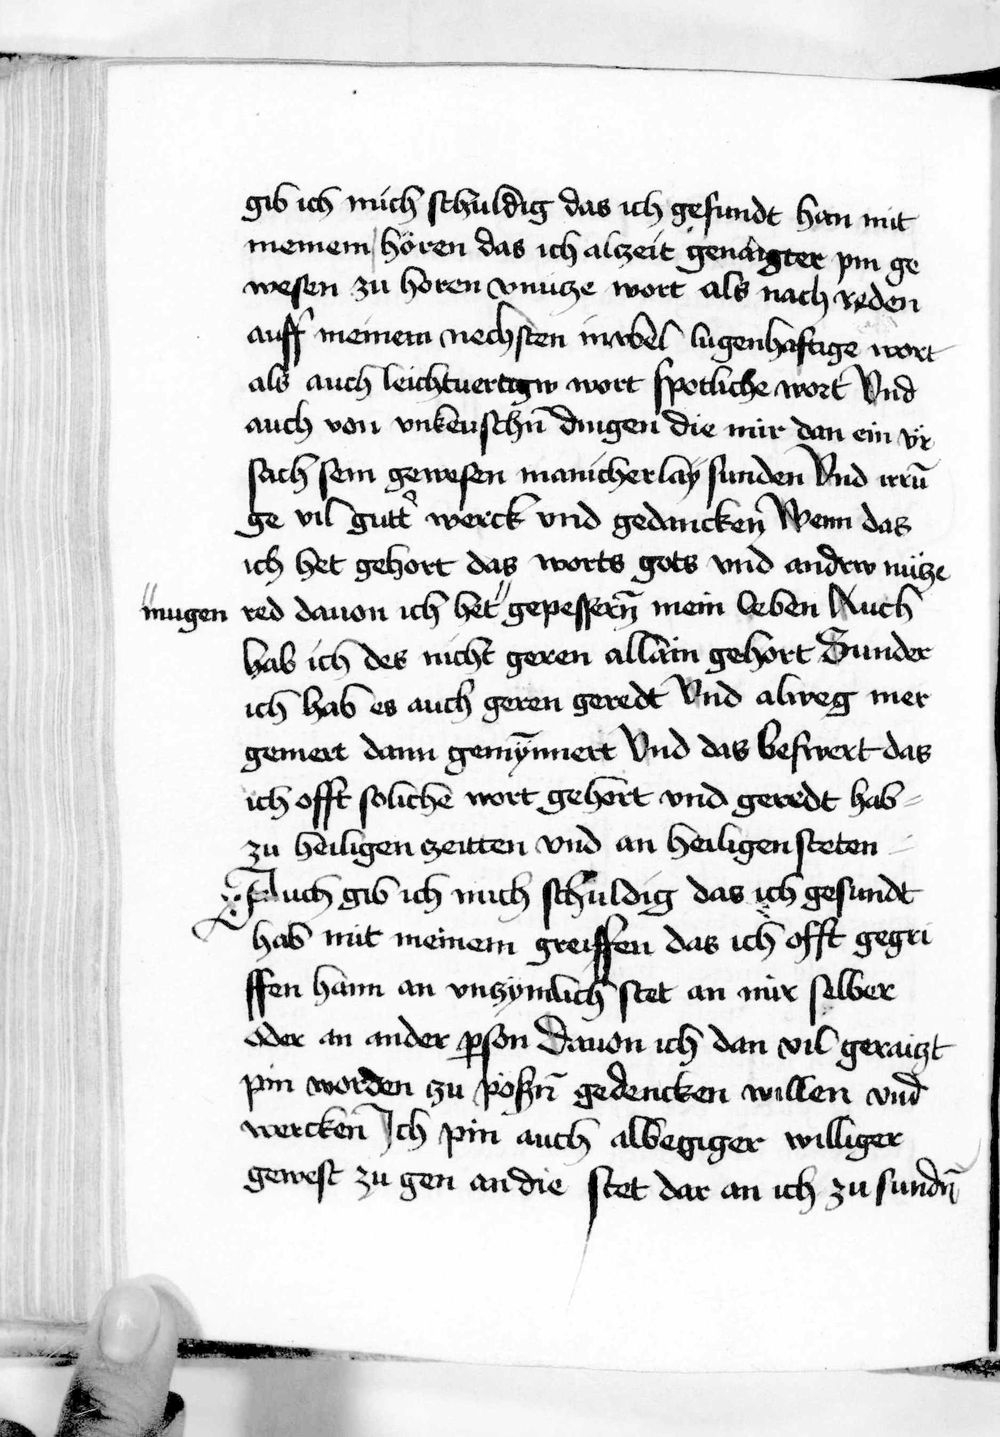 gib ich mich schuldig das ich gesundt han mit
meinem hören das ich alzeit genaigter pin ge
wesen zu horen vnnutze wort als nach reden
auff meinem nechsten inwel lugenhaftige wort
als auch leichtuertigw wort spetliche wort Vnd
auch von vnkeuschn̄ dingen die mir dan ein vr
sach sein gewesen manicherlaÿ sunden Vnd irrū
ge vil gutt' werck vnd gedancken Wenn das
ich het gehort das worts gots vnd andrw nütze
"mugen red dauon ich het " gepessern̄ mein leben Auch
hab ich des nicht geren allain gehort Sunder
ich hab es auch geren geredt Vnd alweg mer
gemert dann gemÿnnert Vnd das beswert das
ich offt soliche wort gehort vnd geredt hab
zu heiligen zeitten vnd an heiligen steten
Auch gib ich mich schuldig das ich gesundt
hab mit meinem greiffen das ich offt gegri
ffen hann an vnzymlich stet an mir selber
oder an ander ꝑson Dauon ich dan vil geraitzt
pin worden zu poßn̄ gedencken willen vnd
wercken Ich pin auch albegiger williger
gewest zu gen an die stet dar an ich zu sundn̄